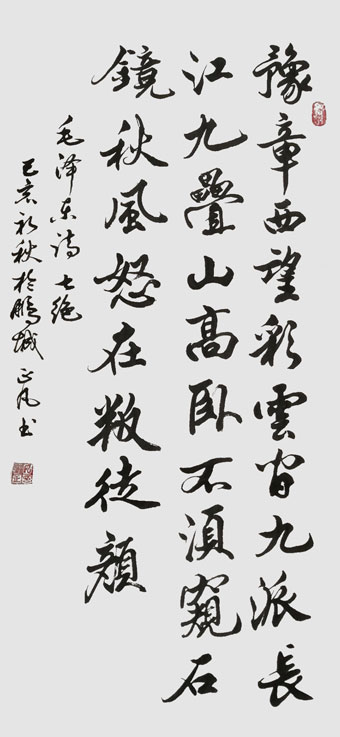 豫章西望彩雲间九派長
江九疊山高臥不須窺石
鏡秋風怒在叛徒顏
毛泽东诗七绝
己亥初秋於鹏城 正凡书